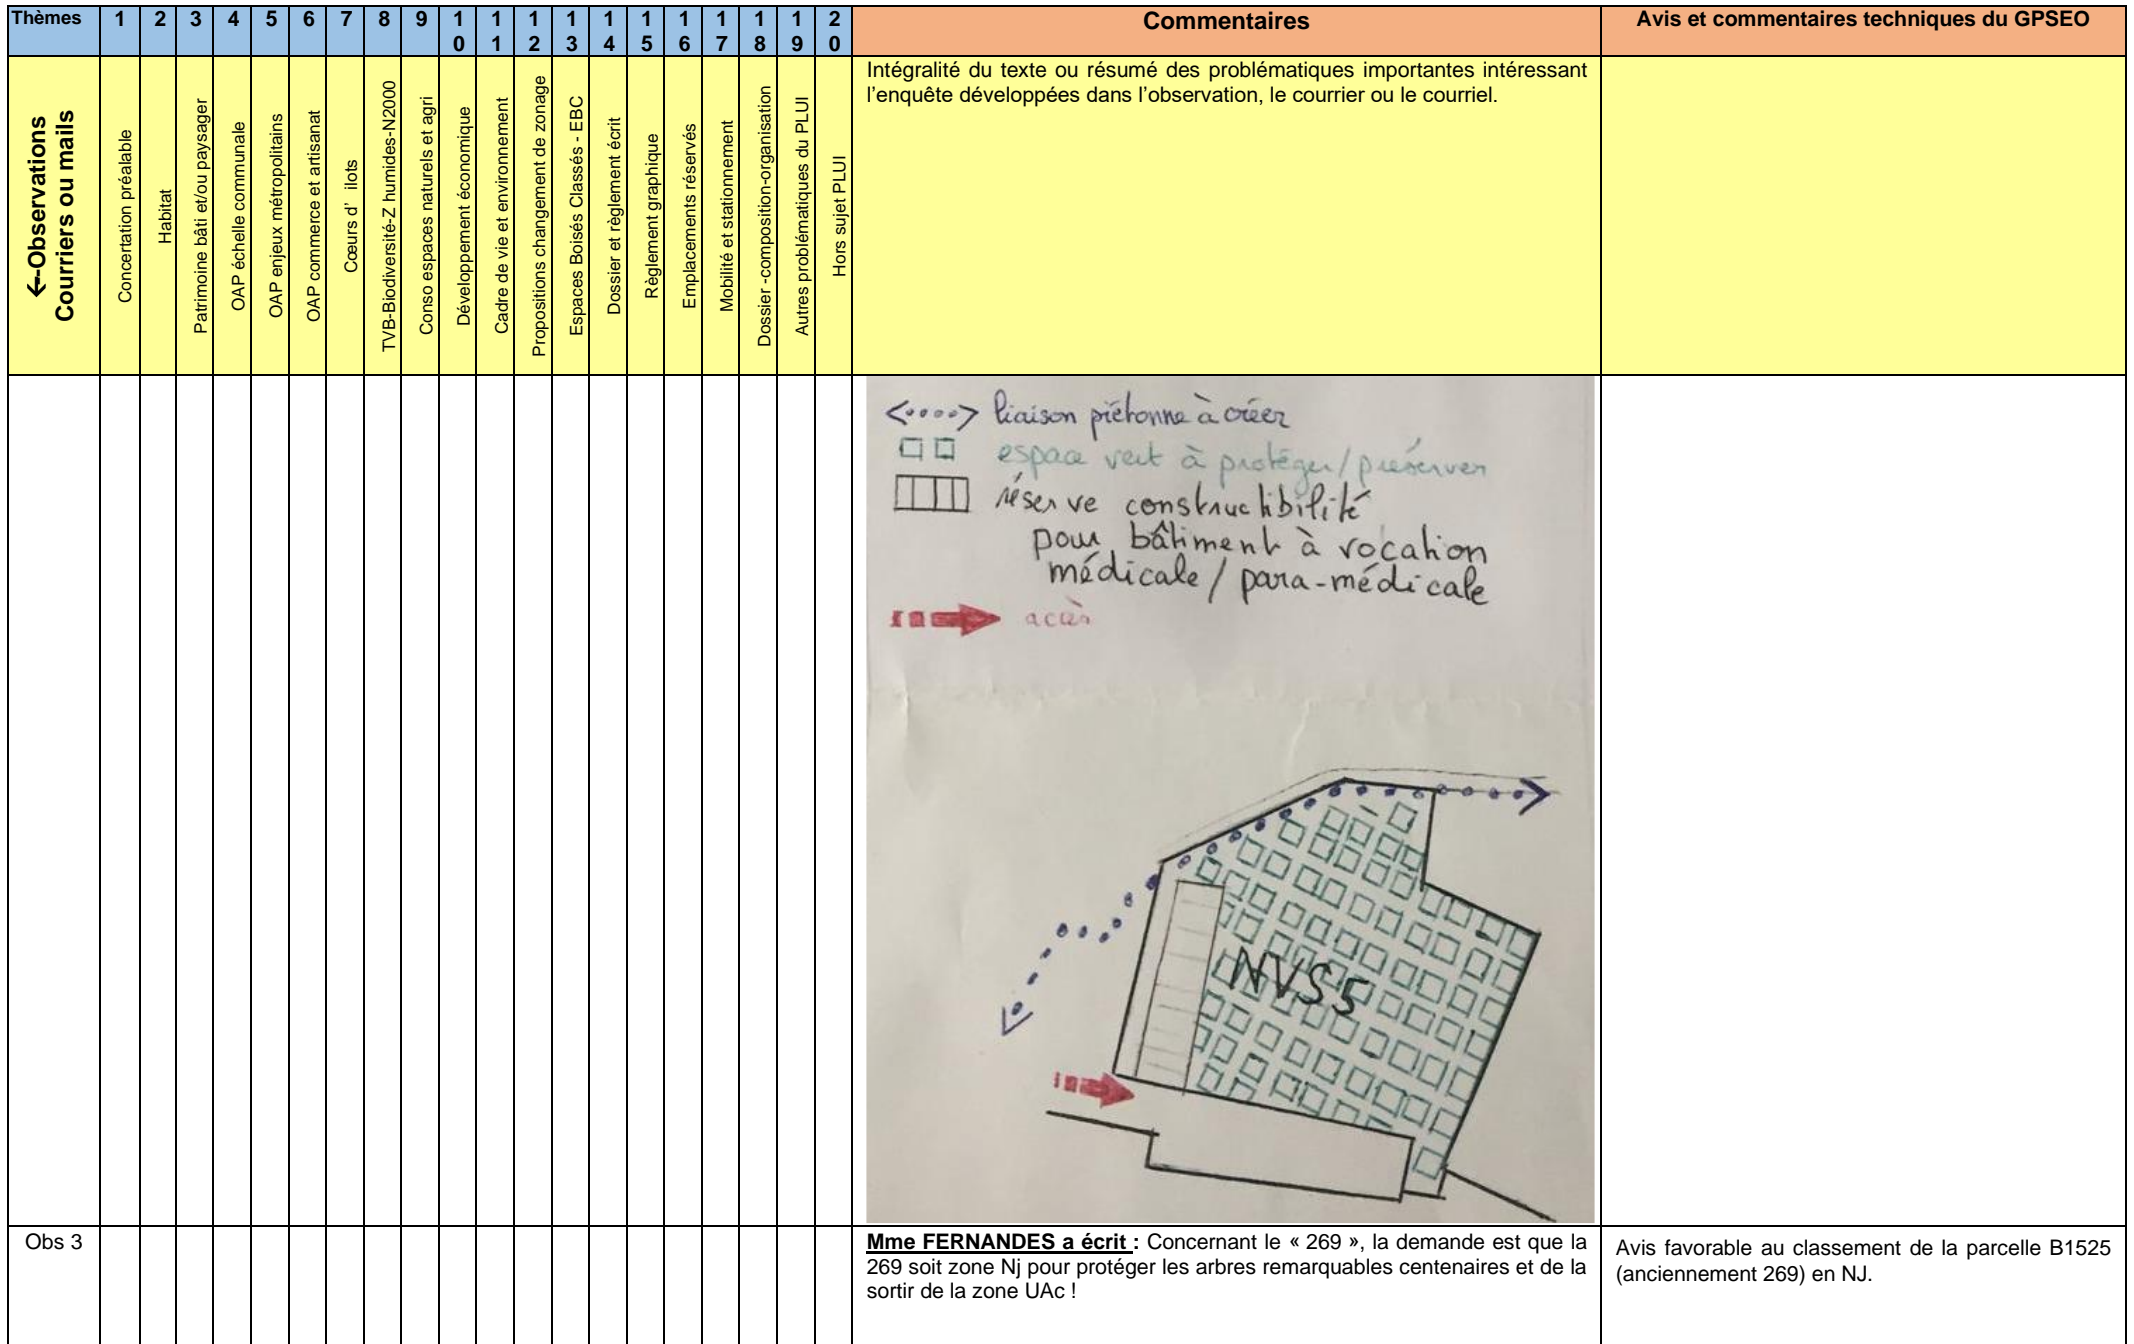 Thèmes 1 2 3 4 5 6 7 8 9 10 11 12 13 14 15 16 17 18 19 20 Commentaires Avis et commentaires techniques du GPSEO
←-Observations
Courriers ou mails
Concertation préalable
Habitat
Patrimoine bâti et/ou paysager
OAP échelle communale
OAP enjeux métropolitains
OAP commerce et artisanat
Cœurs d' ilots
TVB-Biodiversité-Z humides-N2000
Conso espaces naturels et agri
Développement économique
Cadre de vie et environnement
Propositions changement de zonage
Espaces Boisés Classés - EBC
Dossier et règlement écrit
Règlement graphique
Emplacements réservés
Mobilité et stationnement
Dossier -composition-organisation
Autres problématiques du PLUI
Hors sujet PLUI
Intégralité du texte ou résumé des problématiques importantes intéressant
l'enquête développées dans l'observation, le courrier ou le courriel.
liaison piétonne à créer
espace vert à protéger/préserver
réserve constructibilité
pour bâtiment à vocation
médicale / para-médicale
accès
NVS5
Obs 3
Mme FERNANDES a écrit : Concernant le « 269 », la demande est que la
269 soit zone Nj pour protéger les arbres remarquables centenaires et de la
sortir de la zone UAc !
Avis favorable au classement de la parcelle B1525
(anciennement 269) en NJ.